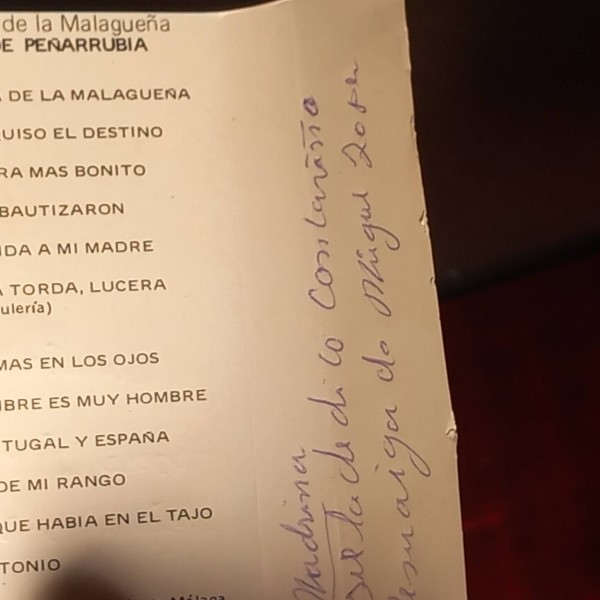 de la Malagueña
E PEÑARRUBIA
A DE LA MALAGUEÑA
UISO EL DESTINO
RA MAS BONITO
BAUTIZARON
IDA A MI MADRE
A TORDA, LUCERA
ulería)
MAS EN LOS OJOS
BRE ES MUY HOMBRE
TUGAL Y ESPAÑA
DE MI RANGO
QUE HABIA EN EL TAJO
TONIO
Málaga
Madrina
dedico con cariño
Miguel